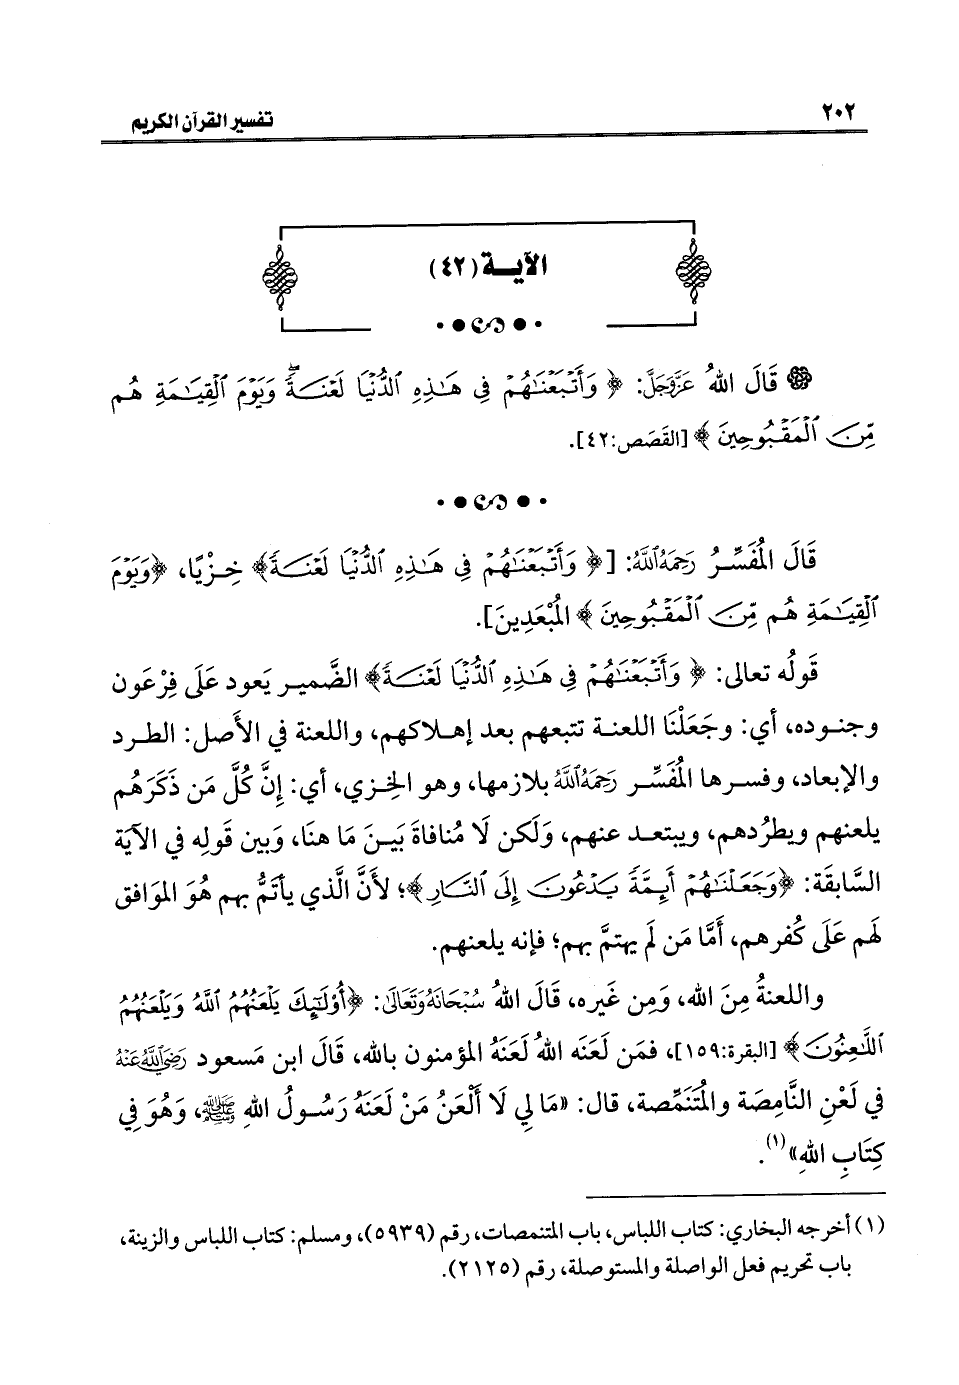 ٢٠٢
تفسير القرآن الكريم
الآيـة (٤٢)
قَالَ اللهُ عَزَّوَجَلَّ: ﴿وَأَتۡبَعۡنَٰهُمۡ فِي هَٰذِهِ ٱلدُّنۡيَا لَعۡنَةٗۖ وَيَوۡمَ ٱلۡقِيَٰمَةِ هُم
مِّنَ ٱلۡمَقۡبُوحِينَ﴾ [القَصَص:٤٢].
قَالَ المُفَسِّرُ رَحِمَهُ اللَّهُ: [﴿وَأَتۡبَعۡنَٰهُمۡ فِي هَٰذِهِ ٱلدُّنۡيَا لَعۡنَةٗ﴾ خِزْيًا، ﴿وَيَوۡمَ
ٱلۡقِيَٰمَةِ هُم مِّنَ ٱلۡمَقۡبُوحِينَ﴾ المُبْعَدِينَ].
قَولُه تعالى: ﴿وَأَتۡبَعۡنَٰهُمۡ فِي هَٰذِهِ ٱلدُّنۡيَا لَعۡنَةٗ﴾ الضَّمير يَعود عَلَى فِرْعَون
وجنوده، أي: وجَعَلْنَا اللعنة تتبعهم بعد إهلاكهم، واللعنة في الأَصل: الطرد
والإبعاد، وفسرها المُفَسِّر رَحِمَهُ اللَّهُ بلازمها، وهو الخِزي، أي: إِنَّ كُلَّ مَن ذَكَرَهُم
يلعنهم ويطرُدهم، ويبتعد عنهم، وَلَكن لَا مُنافاةَ بَينَ مَا هنَا، وَبين قَولِه في الآيَة
السَّابقَة: ﴿وَجَعَلۡنَٰهُمۡ أَئِمَّةٗ يَدۡعُونَ إِلَى ٱلنَّارِ﴾؛ لأَنَّ الَّذي يأتَمُّ بهم هُوَ الموَافق
لَهم عَلَى كُفرهم، أَمَّا مَن لَم يهتمَّ بهم؛ فإنه يلعنهم.
واللعنةُ مِنَ الله، وَمِن غَيره، قَالَ اللهُ سُبْحَانَهُ وَتَعَالَى: ﴿أُوْلَٰٓئِكَ يَلۡعَنُهُمُ ٱللَّهُ وَيَلۡعَنُهُمُ
ٱللَّٰعِنُونَ﴾ [البقرة:١٥٩]، فمَن لَعَنَه اللهُ لَعَنَهُ المؤمنون بالله، قَالَ ابن مَسعود رَضِيَ اللَّهُ عَنْهُ
في لَعْنِ النَّامِصَة والمُتَنَمِّصة، قال: «مَا لِي لَا أَلْعَنُ مَنْ لَعَنَهُ رَسُولُ اللهِ ﷺ، وَهُوَ فِي
كِتَابِ اللهِ»(١).
(١) أخرجه البخاري: كتاب اللباس، باب المتنمصات، رقم (٥٩٣٩)، ومسلم: كتاب اللباس والزينة،
باب تحريم فعل الواصلة والمستوصلة، رقم (٢١٢٥).